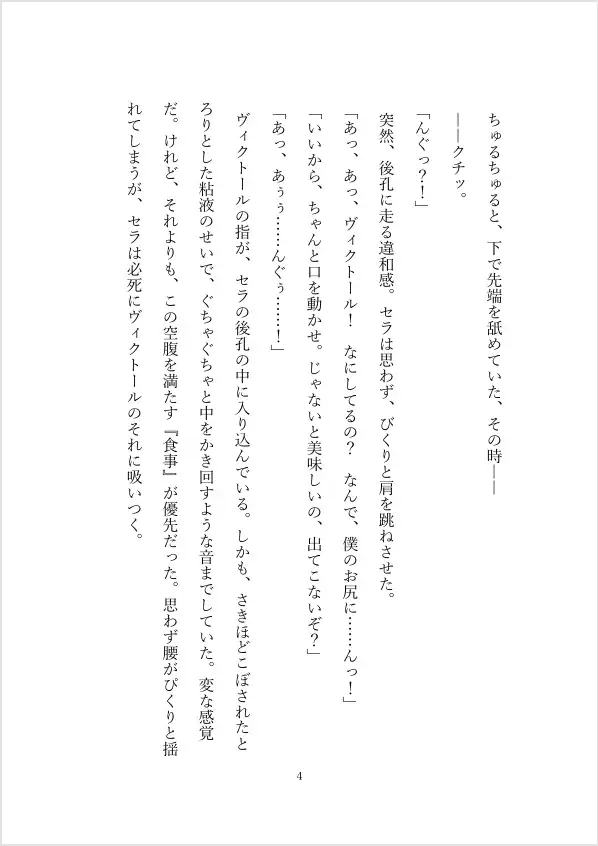 ちゅるちゅると、下で先端を舐めていた、その時――
――クチッ。
「んぐっ？！」
突然、後孔に走る違和感。セラは思わず、びくりと肩を跳ねさせた。
「あっ、あっ、ヴィクトール！　なにしてるの？　なんで、僕のお尻に……んっ！」
「いいから、ちゃんと口を動かせ。じゃないと美味しいの、出てこないぞ？」
「あっ、あぅぅ……んぐぅ……！」
ヴィクトールの指が、セラの後孔の中に入り込んでいる。しかも、さきほどこぼされたと
ろりとした粘液のせいで、ぐちゃぐちゃと中をかき回すような音までしていた。変な感覚
だ。けれど、それよりも、この空腹を満たす『食事』が優先だった。思わず腰がぴくりと揺
れてしまうが、セラは必死にヴィクトールのそれに吸いつく。
4